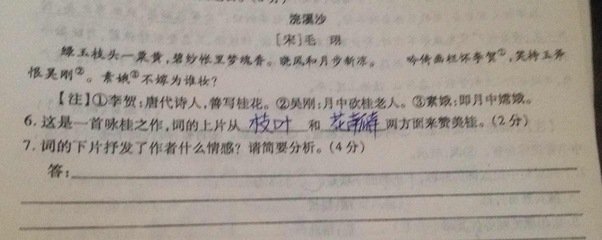 浣溪沙
[宋]毛 珝
绿玉枝头一粟黄，碧纱帐里梦魂香。晓风和月步新凉。 吟倚画栏怀李贺①，笑持玉斧
恨吴刚②。素娥③不嫁为谁妆?
【注】①李贺：唐代诗人，善写桂花。②吴刚：月中砍桂老人。③素娥：即月中嫦娥。
6. 这是一首咏桂之作，词的上片从 枝叶 和 花瓣 两方面来赞美桂。(2分)
7. 词的下片抒发了作者什么情感？请简要分析。(4分)
答：